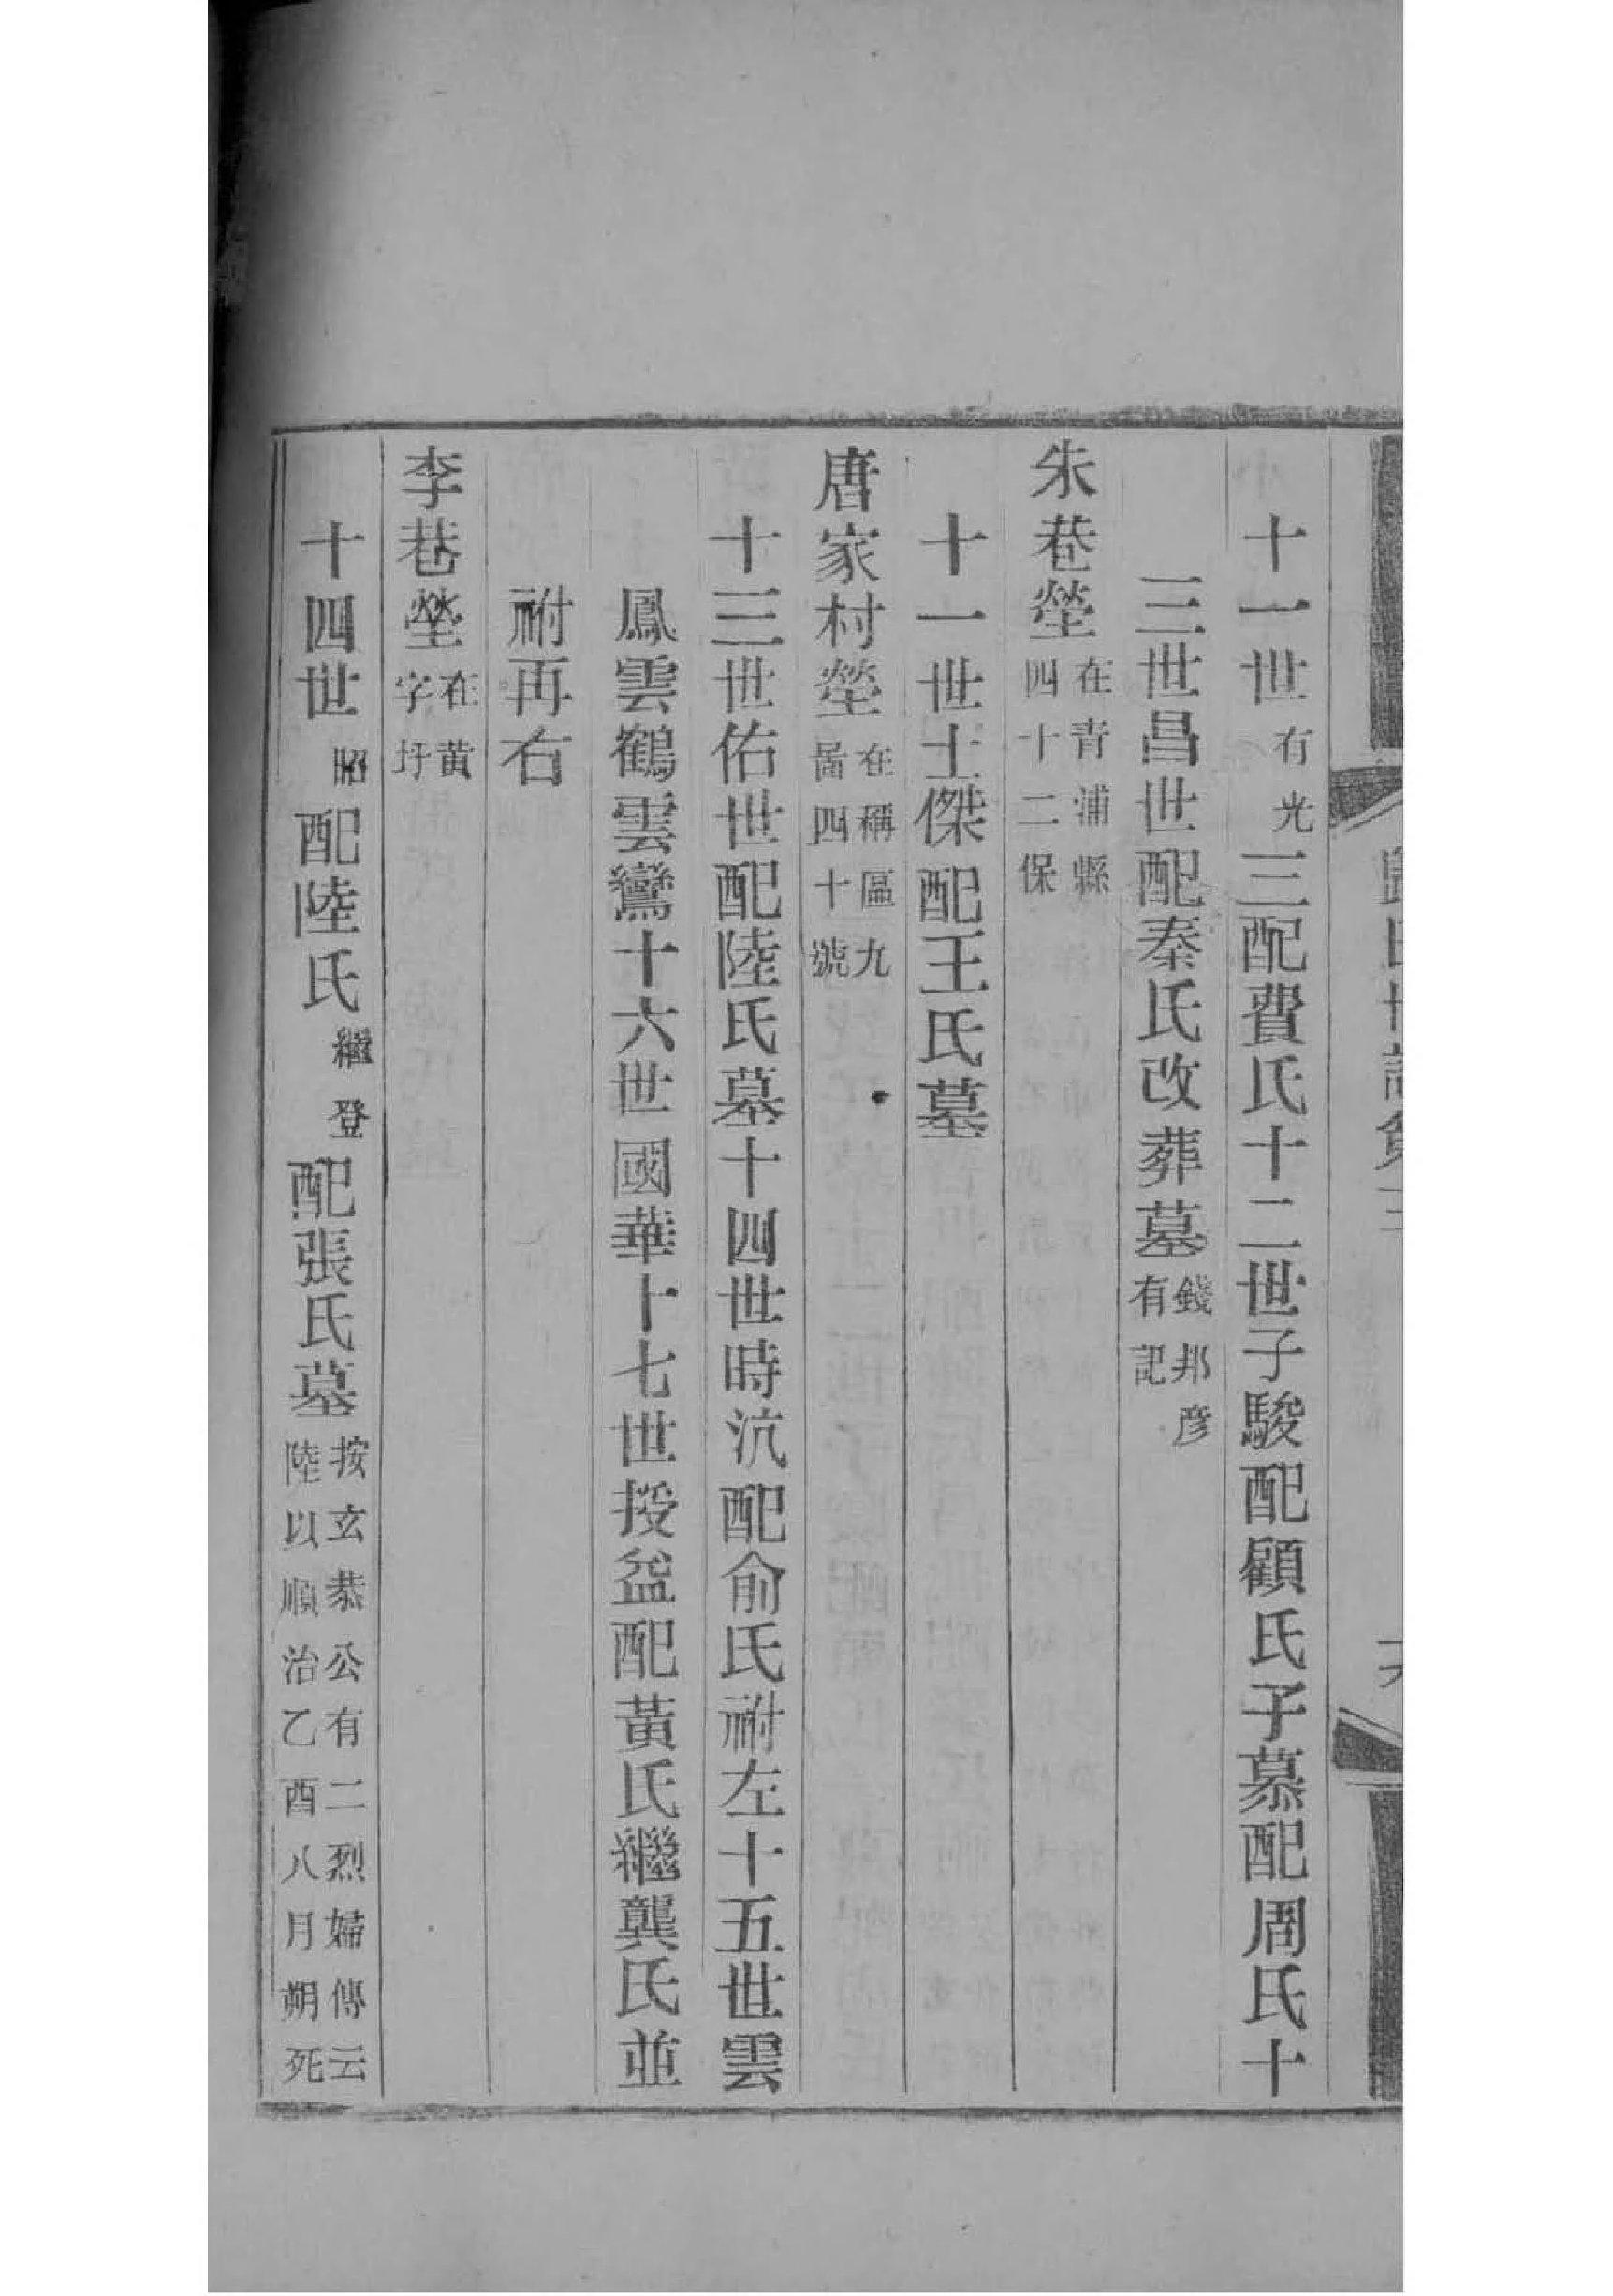 十一世有光三配費氏十二世子駿配顧氏子慕配周氏十
三世昌世配秦氏改葬墓錢邦彦有記
朱巷塋在青浦縣四十二保
十一世士傑配王氏墓
唐家村塋在稱區九啚四十號
十三世佑世配陸氏墓十四世時沆配俞氏祔左十五世雲
鳳雲鶴雲鸞十六世國華十七世授益配黃氏繼龔氏並
祔再右
李巷塋在黄字圩
十四世昭配陸氏繼登配張氏墓按玄恭公有二烈婦傳云陸以順治乙酉八月朔死